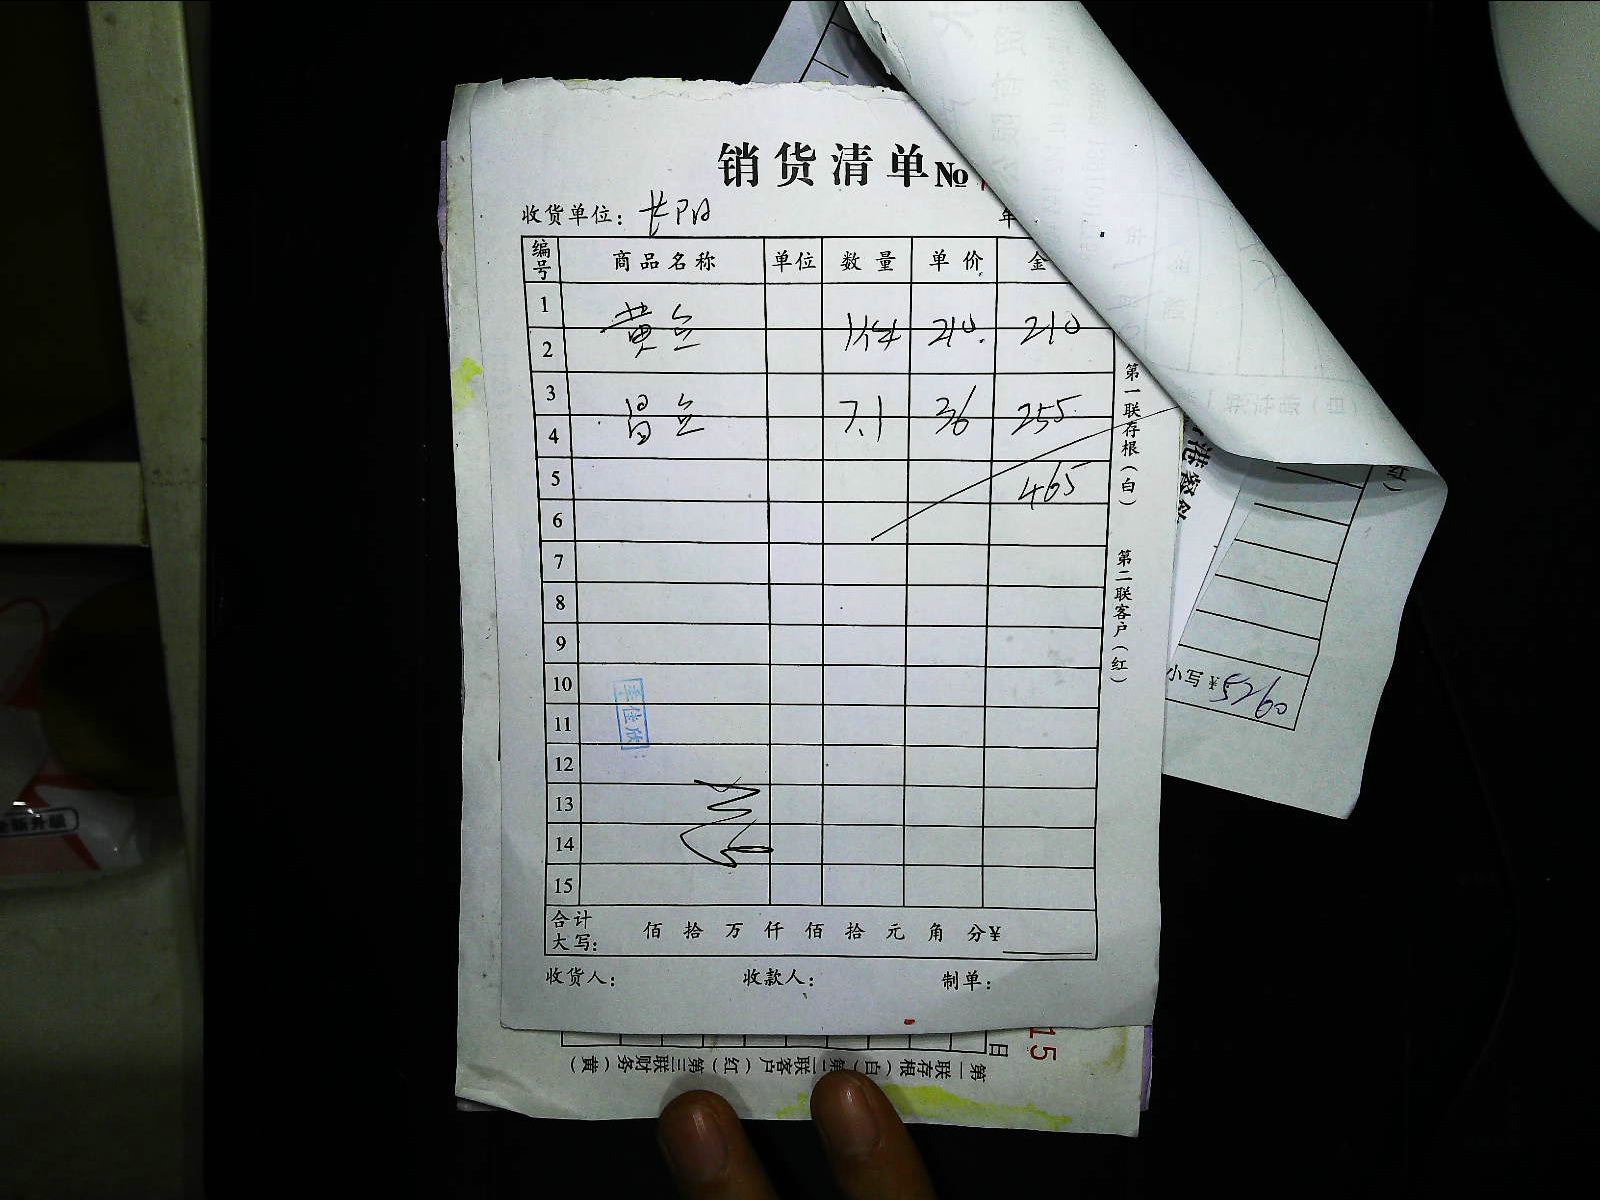 销货清单 №
收货单位: 长阳 年
编号 商品名称 单位 数量 单价 金
1
黄 210. 210
2
3
7.1 36 255
4
5 465
6
7
8
9
10
11
12
13
14
15
合计大写: 佰 拾 万 仟 佰 拾 元 角 分 ¥
收货人: 收款人: 制单:
第一联存根(白) 第二联客户(红)
小写¥
日
15
第一联存根(白) 第二联客户(红) 第三联财务(黄)